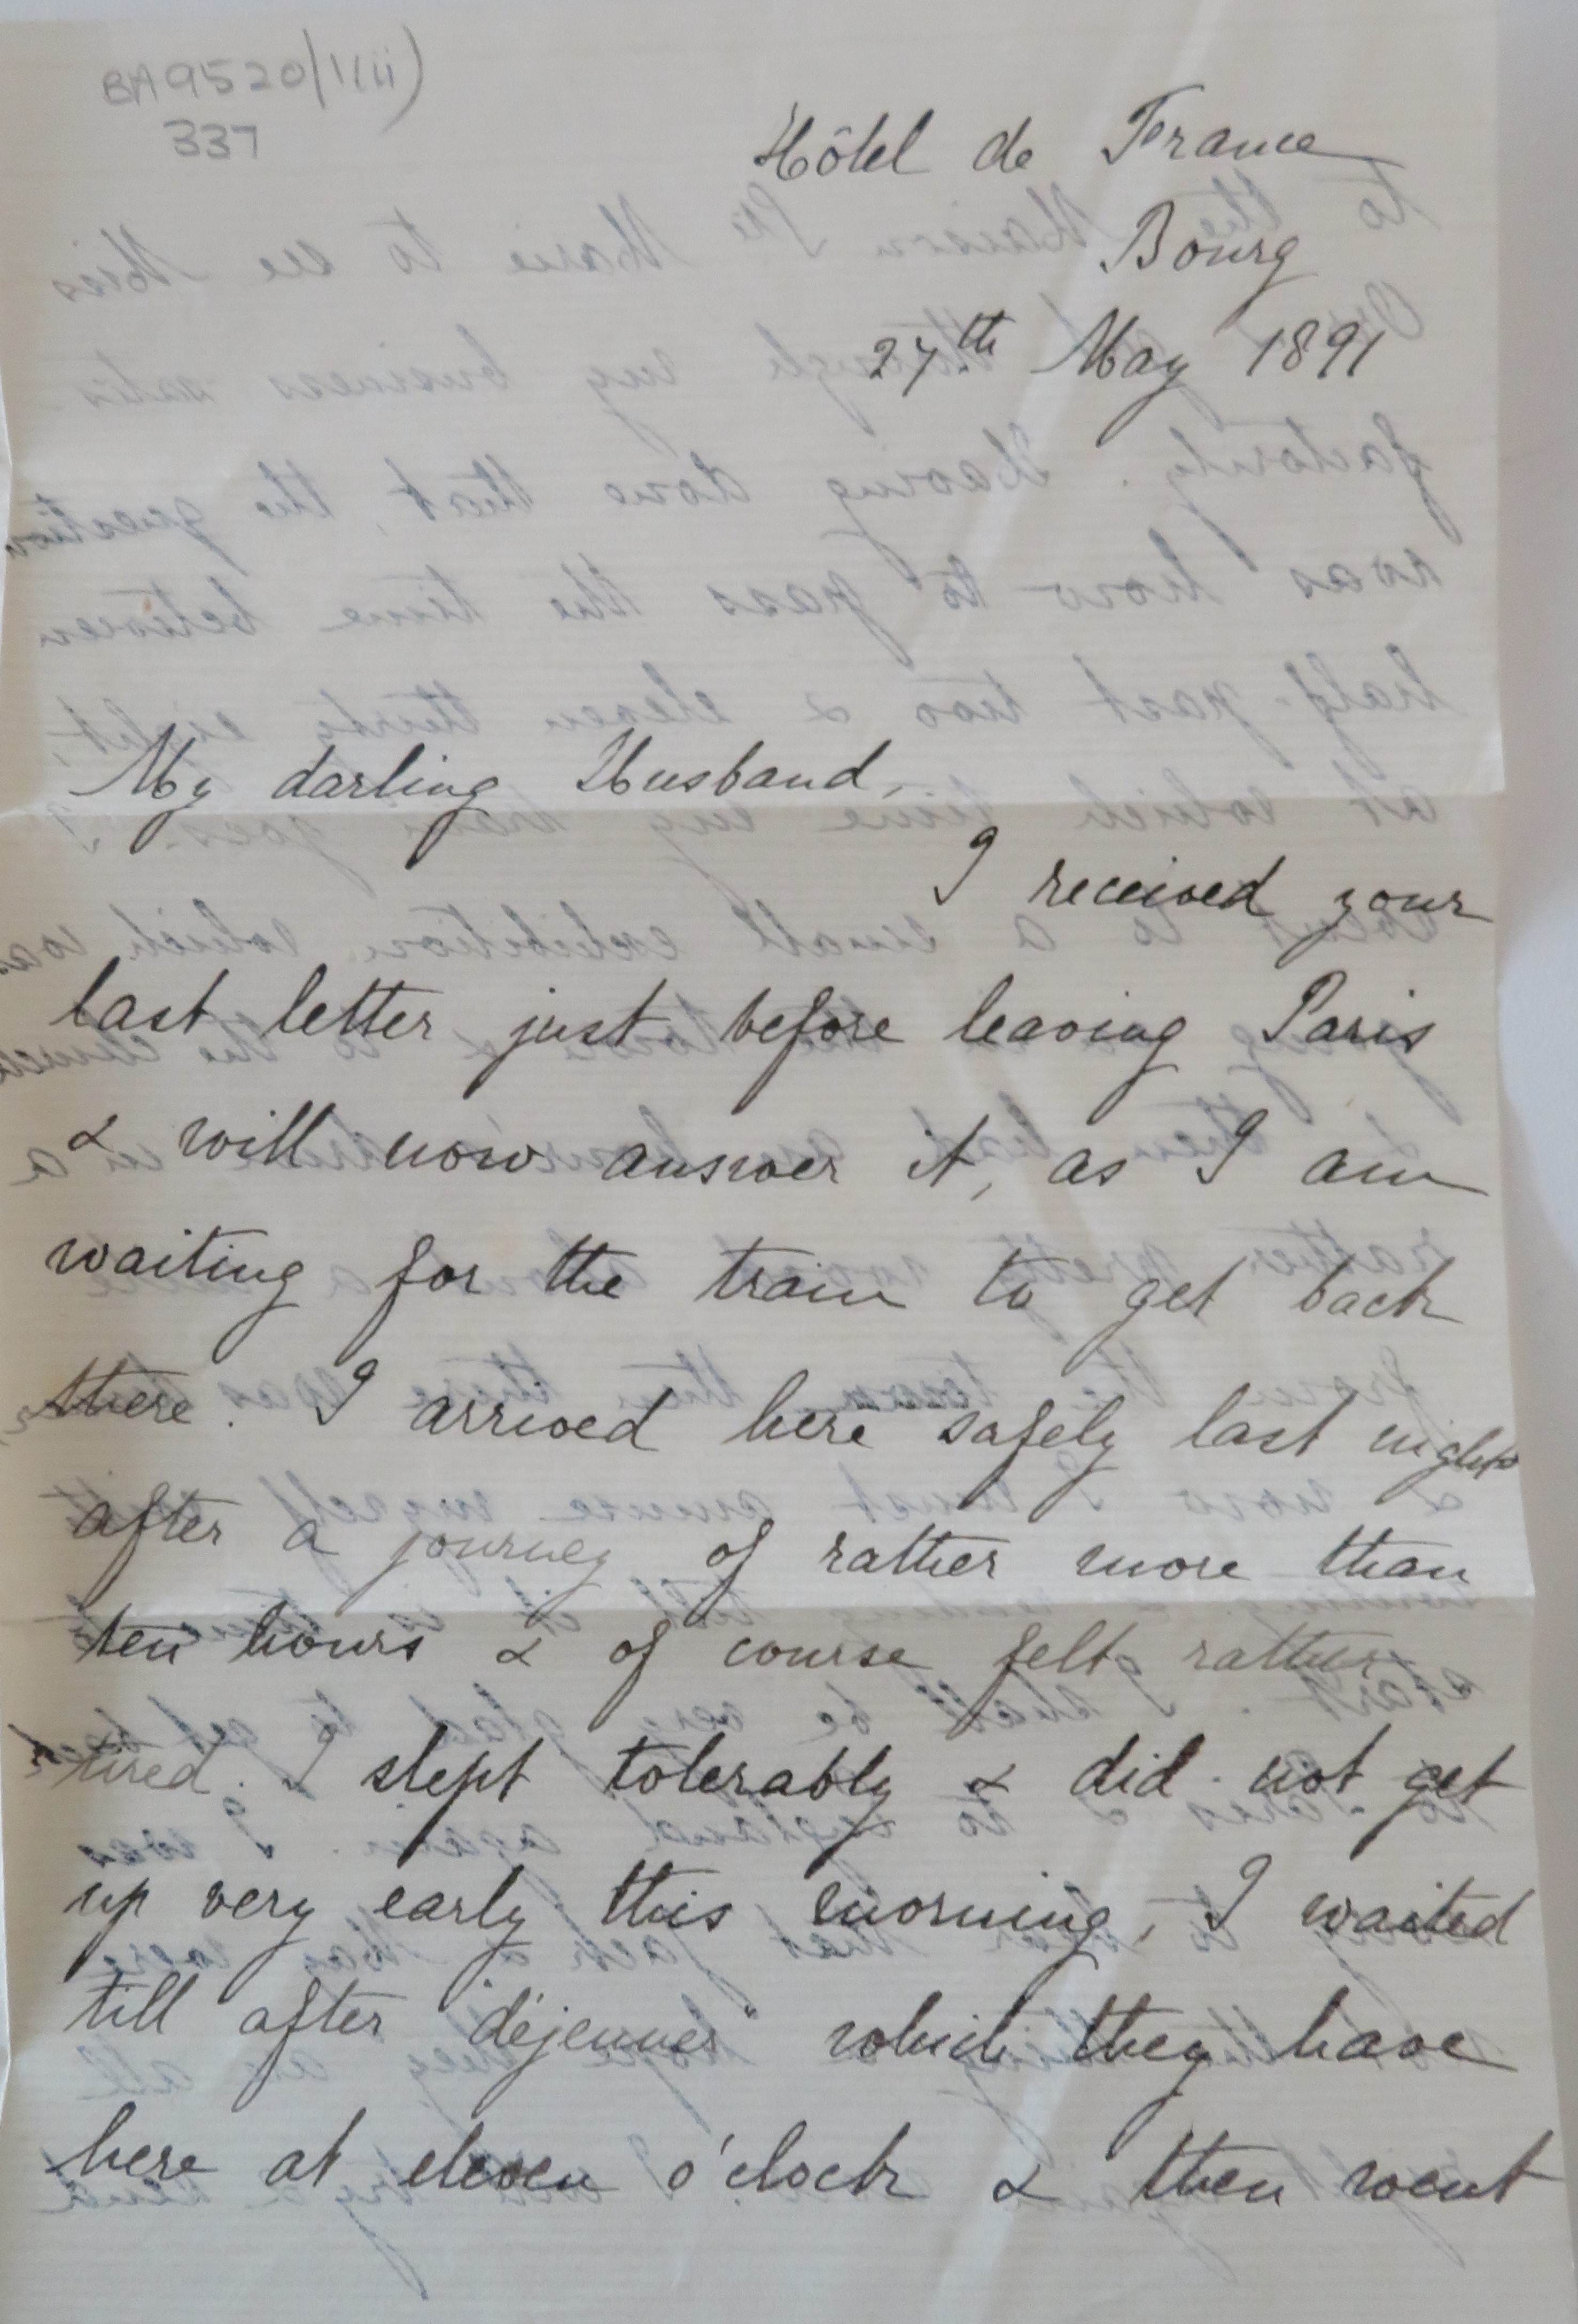 BA9520/1(ii)
337
Hôtel de France
Bourg
27th May 1891
My darling Husband,
I received your
last letter just before leaving Paris
& will now answer it, as I am
waiting for the train to get back
there. I arrived here safely last night
after a journey of rather more than
ten hours & of course felt rather
tired. I slept tolerably & did not get
up very early this morning, I waited
till after "déjeuner" which they have
here at eleven o'clock & then went